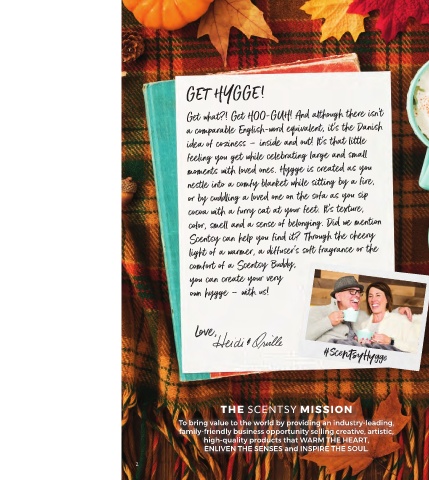 GET HYGGE!
Get what?! Get HOO-GUH! And although there isn't
a comparable English-word equivalent, it's the Danish
idea of coziness – inside and out! It's that little
feeling you get while celebrating large and small
moments with loved ones. Hygge is created as you
nestle into a comfy blanket while sitting by a fire,
or by cuddling a loved one on the sofa as you sip
cocoa with a furry cat at your feet. It's texture,
color, smell and a sense of belonging. Did we mention
Scentsy can help you find it? Through the cheery
light of a warmer, a diffuser's soft fragrance or the
comfort of a Scentsy Buddy,
you can create your very
own hygge – with us!
Love,
Heidi & Orville
#ScentsyHygge
THE SCENTSY MISSION
To bring value to the world by providing an industry-leading,
family-friendly business opportunity selling creative, artistic,
high-quality products that WARM THE HEART,
ENLIVEN THE SENSES and INSPIRE THE SOUL.
2